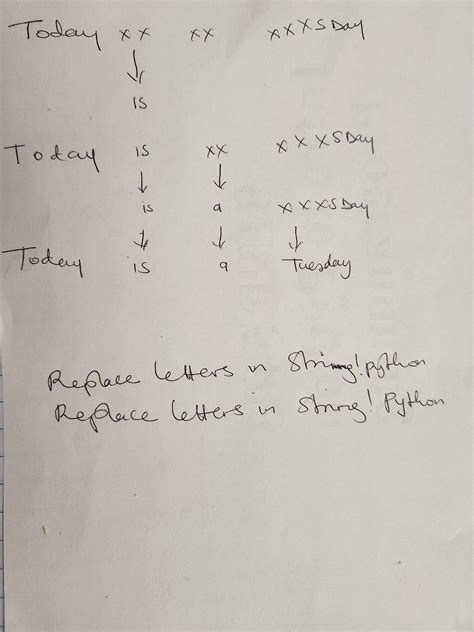 Today xx xx xxxsDay
is
Today is xx xxxsDay
is a xxxsDay
Today is a Tuesday
Replace letters in String! python
Replace letters in String! Python